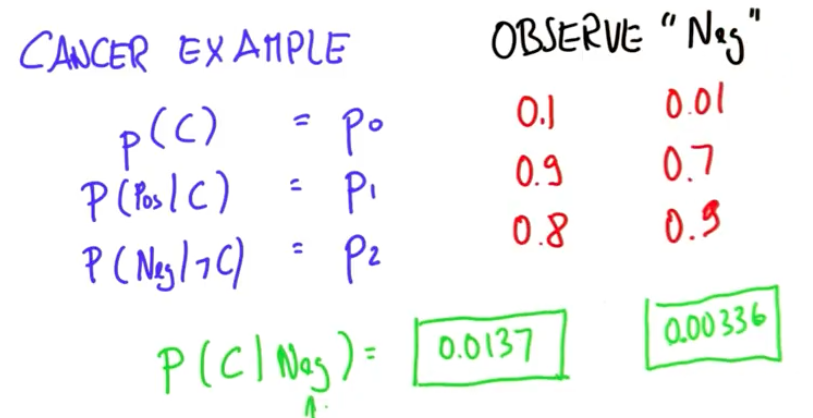 CANCER EXAMPLE OBSERVE "Neg"
P(C) = P0 0.1 0.01
P(Pos|C) = P1 0.9 0.7
P(Neg|¬C) = P2 0.8 0.9
P(C|Neg) = 0.0137 0.00336